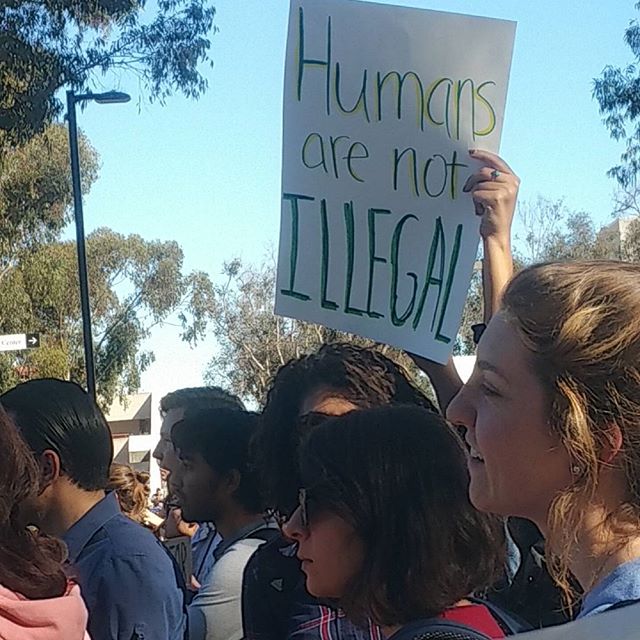 Humans
are not
ILLEGAL
Center